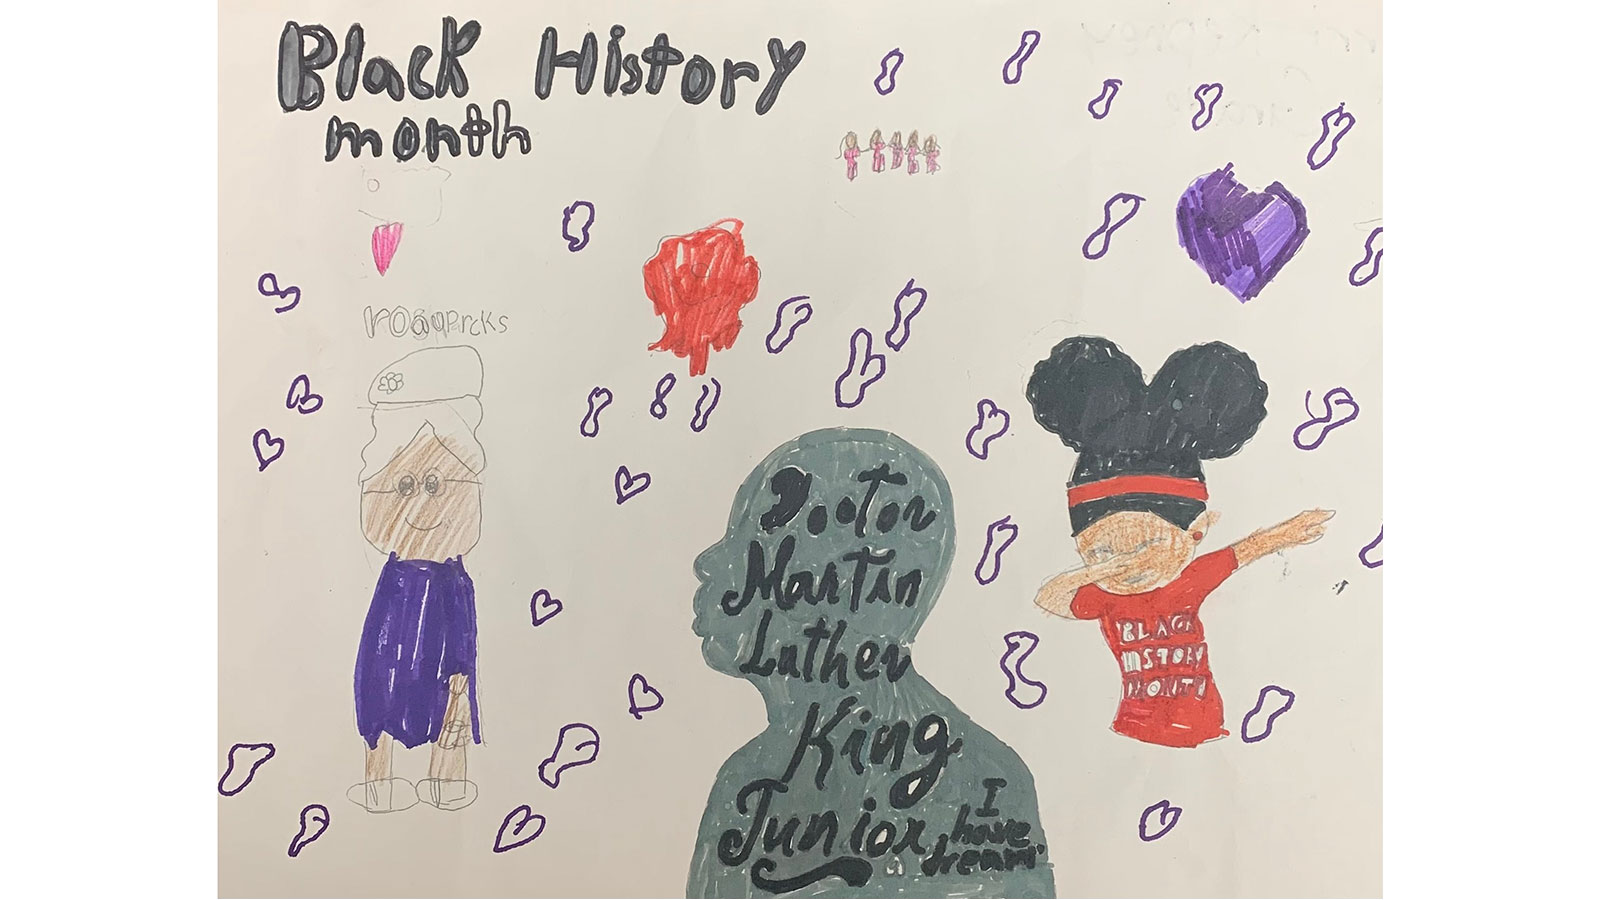 Black History
month
Doctor
Martin
Luther
King
Junior
I
have
a dream
BLACK
HISTORY
MONTH